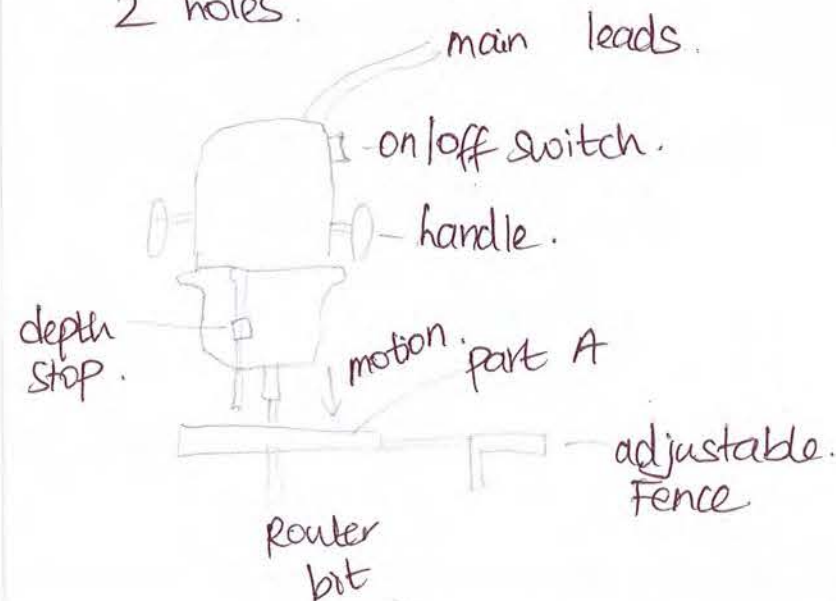 2 holes.
main leads.
on/off switch.
handle.
depth
stop.
motion.
part A
adjustable.
Fence
Router
bit